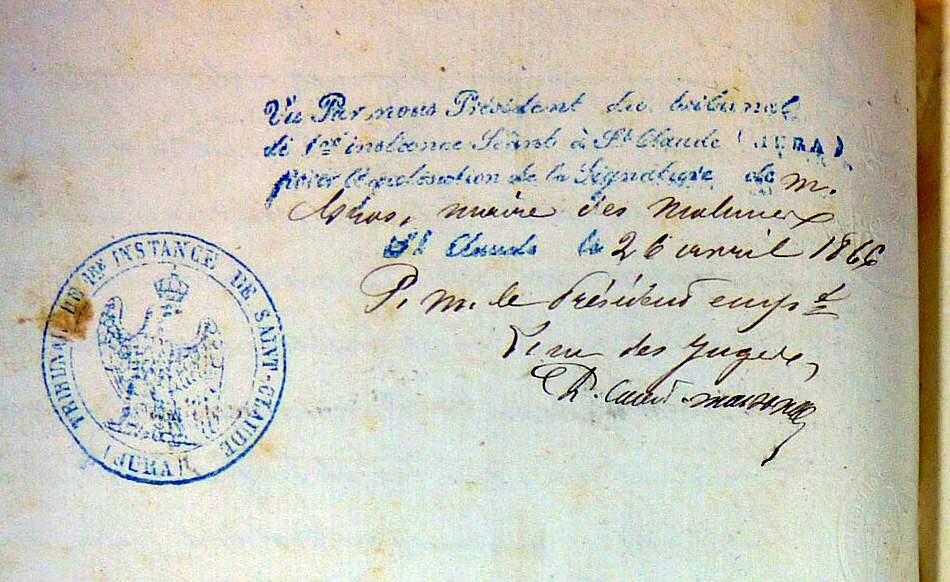 Vu Par nous Président du tribunal
de 1ère instance Séant à St Claude (JURA)
pour légalisation de la Signature de M.
Gros, maire des Molunes
St Claude le 26 avril 1866
P. M. le Président emp.t
L'un des Juges,
TRIBUNAL DE 1RE INSTANCE DE SAINT-CLAUDE
(JURA)